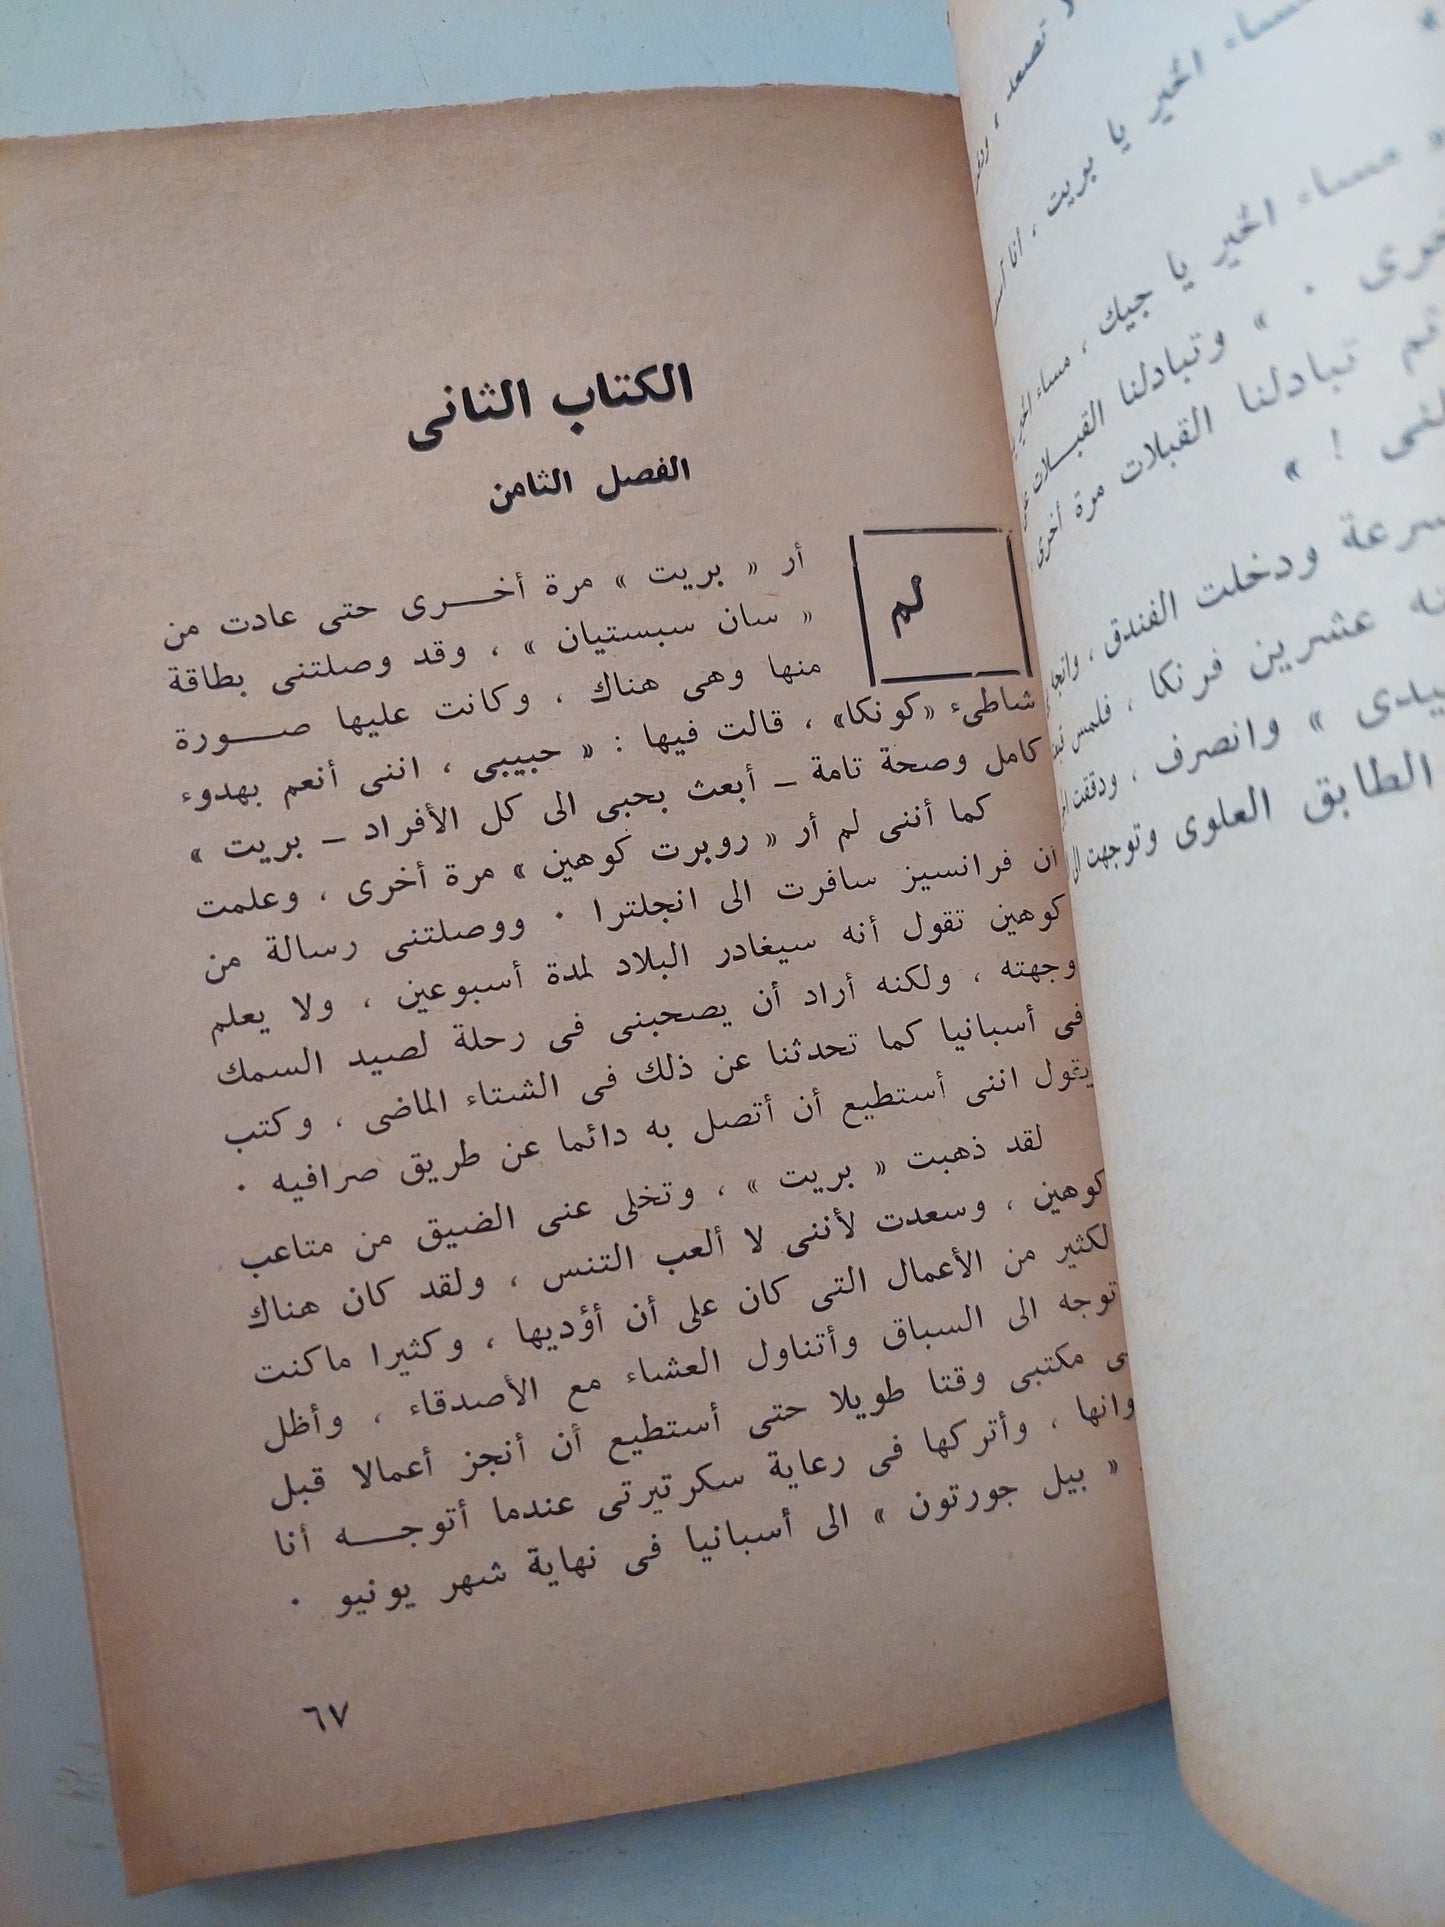 الكتاب الثانى
الفصل الثامن
لم
أر « بريت » مرة أخـــرى حتى عادت من
« سان سبستيان » ، وقد وصلتنى بطاقة
منها وهى هناك ، وكانت عليها صـــورة
شاطىء «كونكا» ، قالت فيها : « حبيبى ، اننى أنعم بهدوء
كامل وصحة تامة ــ أبعث بحبى الى كل الأفراد ــ بريت »
كما أننى لم أر « روبرت كوهين » مرة أخرى ، وعلمت
أن فرانسيز سافرت الى انجلترا . ووصلتنى رسالة من
كوهين تقول أنه سيغادر البلاد لمدة أسبوعين ، ولا يعلم
وجهته ، ولكنه أراد أن يصحبنى فى رحلة لصيد السمك
فى أسبانيا كما تحدثنا عن ذلك فى الشتاء الماضى ، وكتب
يقول اننى أستطيع أن أتصل به دائما عن طريق صرافيه .
لقد ذهبت « بريت » ، وتخلى عنى الضيق من متاعب
كوهين ، وسعدت لأننى لا ألعب التنس ، ولقد كان هناك
لكثير من الأعمال التى كان على أن أؤديها ، وكثيرا ماكنت
توجه الى السباق وأتناول العشاء مع الأصدقاء ، وأظل
ى مكتبى وقتا طويلا حتى أستطيع أن أنجز أعمالا قبل
وانها ، وأتركها فى رعاية سكرتيرتى عندما أتوجـــه أنا
« بيل جورتون » الى أسبانيا فى نهاية شهر يونيو .
٦٧
لا تصعد ،
مساء الخير يا بريت ، أنا
« مساء الخير يا جيك ، مساء الخير
خرى . » وتبادلنا القبـــلات
ثم تبادلنا القبلات مرة أخرى
! »
سرعة ودخلت الفندق ،
عشرين فرنكا ، فلمس
يدى » وانصرف ، ودققت
الطابق العلوى وتوجهت الى